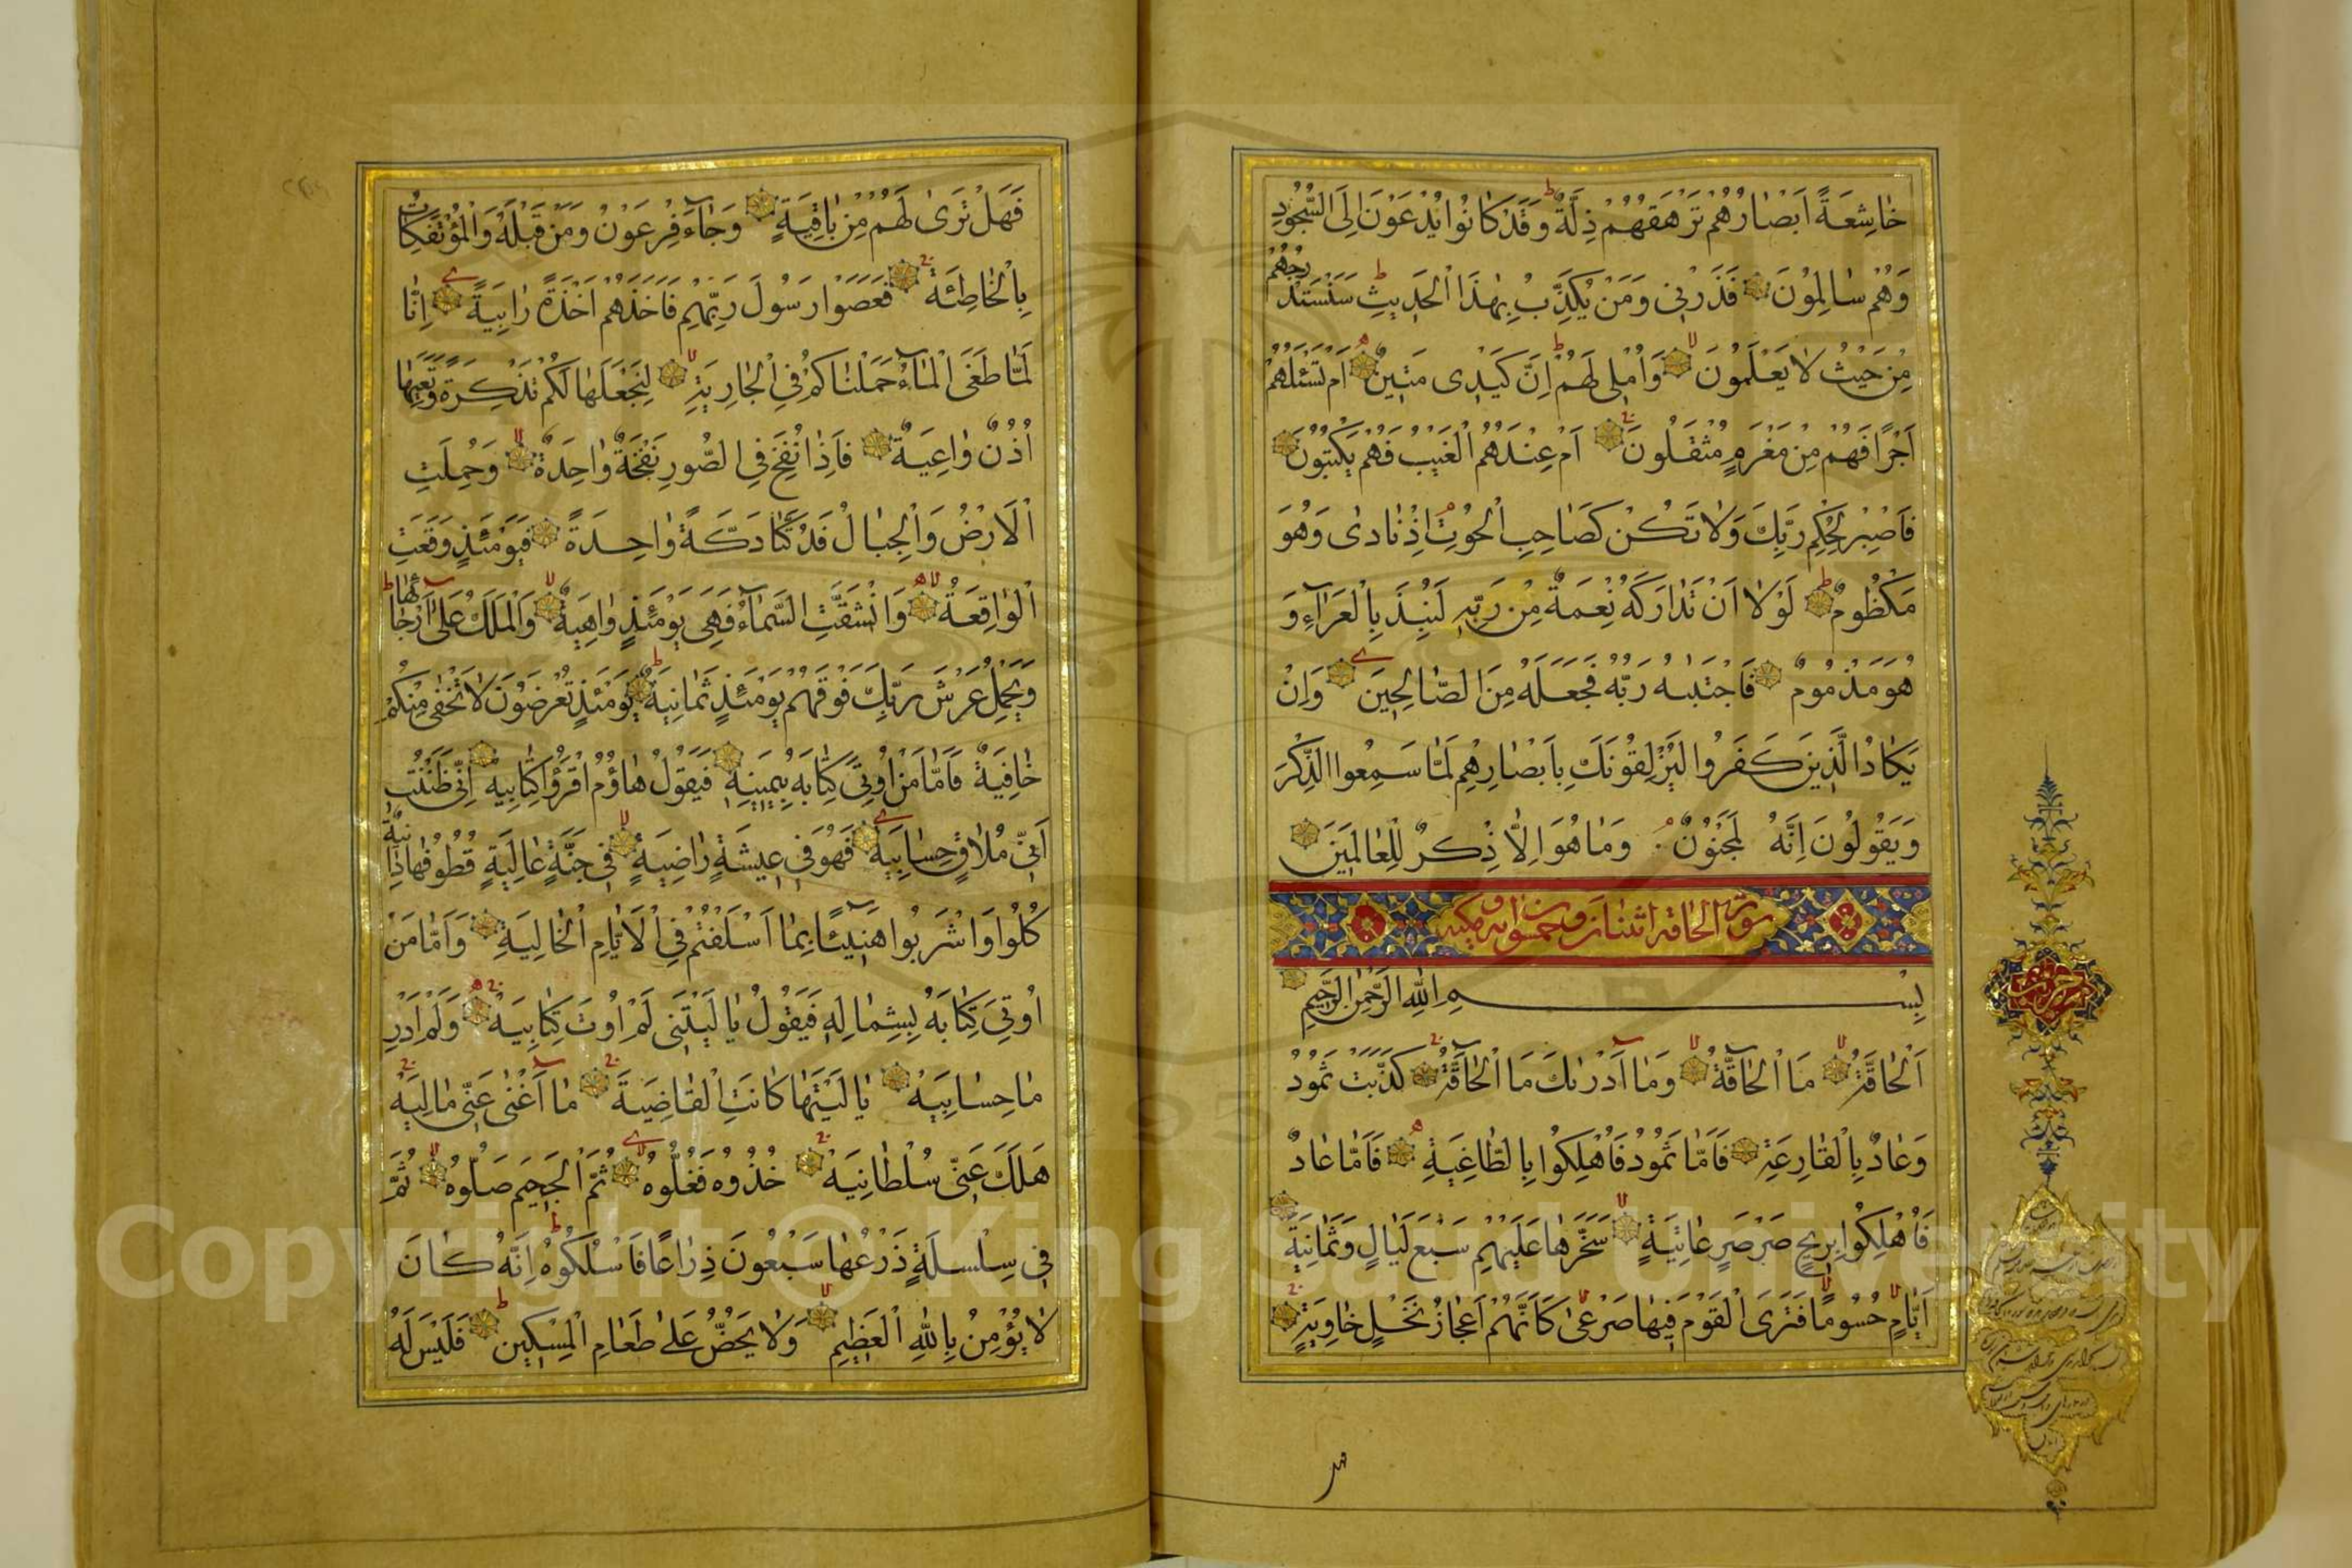 خَاشِعَةً اَبْصَارُهُمْ تَرْهَقُهُمْ ذِلَّةٌ وَقَدْ كَانُوا يُدْعَوْنَ اِلَى السُّجُودِ
وَهُمْ سَالِمُونَ فَذَرْنِي وَمَنْ يُكَذِّبُ بِهٰذَا الْحَدِيثِ سَنَسْتَدْرِجُهُمْ
مِنْ حَيْثُ لَا يَعْلَمُونَ وَاُمْلِي لَهُمْ اِنَّ كَيْدِى مَتِينٌ اَمْ تَسْئَلُهُمْ
اَجْرًا فَهُمْ مِنْ مَغْرَمٍ مُثْقَلُونَ اَمْ عِنْدَهُمُ الْغَيْبُ فَهُمْ يَكْتُبُونَ
فَاصْبِرْ لِحُكْمِ رَبِّكَ وَلَا تَكُنْ كَصَاحِبِ الْحُوتِ اِذْ نَادٰى وَهُوَ
مَكْظُومٌ لَوْلَا اَنْ تَدَارَكَهُ نِعْمَةٌ مِنْ رَبِّهِ لَنُبِذَ بِالْعَرَآءِ وَ
هُوَ مَذْمُومٌ فَاجْتَبٰيهُ رَبُّهُ فَجَعَلَهُ مِنَ الصَّالِحِينَ وَاِنْ
يَكَادُ الَّذِينَ كَفَرُوا لَيُزْلِقُونَكَ بِاَبْصَارِهِمْ لَمَّا سَمِعُوا الذِّكْرَ
وَيَقُولُونَ اِنَّهُ لَمَجْنُونٌ وَمَا هُوَ اِلَّا ذِكْرٌ لِلْعَالَمِينَ
سورة الحاقة اثنتان وخمسون اية مكية
بِسْمِ اللهِ الرَّحْمٰنِ الرَّحِيمِ
اَلْحَاقَّةُ مَا الْحَاقَّةُ وَمَا اَدْرٰيكَ مَا الْحَاقَّةُ كَذَّبَتْ ثَمُودُ
وَعَادٌ بِالْقَارِعَةِ فَاَمَّا ثَمُودُ فَاُهْلِكُوا بِالطَّاغِيَةِ فَاَمَّا عَادٌ
فَاُهْلِكُوا بِرِيحٍ صَرْصَرٍ عَاتِيَةٍ سَخَّرَهَا عَلَيْهِمْ سَبْعَ لَيَالٍ وَثَمَانِيَةَ
اَيَّامٍ حُسُومًا فَتَرَى الْقَوْمَ فِيهَا صَرْعٰى كَاَنَّهُمْ اَعْجَازُ نَخْلٍ خَاوِيَةٍ
فهل
فَهَلْ تَرٰى لَهُمْ مِنْ بَاقِيَةٍ وَجَآءَ فِرْعَوْنُ وَمَنْ قَبْلَهُ وَالْمُؤْتَفِكَاتُ
بِالْخَاطِئَةِ فَعَصَوْا رَسُولَ رَبِّهِمْ فَاَخَذَهُمْ اَخْذَةً رَابِيَةً اِنَّا
لَمَّا طَغَى الْمَآءُ حَمَلْنَاكُمْ فِي الْجَارِيَةِ لِنَجْعَلَهَا لَكُمْ تَذْكِرَةً وَتَعِيَهَا
اُذُنٌ وَاعِيَةٌ فَاِذَا نُفِخَ فِي الصُّورِ نَفْخَةٌ وَاحِدَةٌ وَحُمِلَتِ
الْاَرْضُ وَالْجِبَالُ فَدُكَّتَا دَكَّةً وَاحِدَةً فَيَوْمَئِذٍ وَقَعَتِ
الْوَاقِعَةُ وَانْشَقَّتِ السَّمَآءُ فَهِيَ يَوْمَئِذٍ وَاهِيَةٌ وَالْمَلَكُ عَلٰى اَرْجَائِهَا
وَيَحْمِلُ عَرْشَ رَبِّكَ فَوْقَهُمْ يَوْمَئِذٍ ثَمَانِيَةٌ يَوْمَئِذٍ تُعْرَضُونَ لَا تَخْفٰى مِنْكُمْ
خَافِيَةٌ فَاَمَّا مَنْ اُوتِيَ كِتَابَهُ بِيَمِينِهِ فَيَقُولُ هَاؤُمُ اقْرَؤُا كِتَابِيَهْ اِنِّي ظَنَنْتُ
اَنِّي مُلَاقٍ حِسَابِيَهْ فَهُوَ فِي عِيشَةٍ رَاضِيَةٍ فِي جَنَّةٍ عَالِيَةٍ قُطُوفُهَا دَانِيَةٌ
كُلُوا وَاشْرَبُوا هَنِيئًا بِمَا اَسْلَفْتُمْ فِي الْاَيَّامِ الْخَالِيَةِ وَاَمَّا مَنْ
اُوتِيَ كِتَابَهُ بِشِمَالِهِ فَيَقُولُ يَا لَيْتَنِي لَمْ اُوتَ كِتَابِيَهْ وَلَمْ اَدْرِ
مَا حِسَابِيَهْ يَا لَيْتَهَا كَانَتِ الْقَاضِيَةَ مَا اَغْنٰى عَنِّي مَالِيَهْ
هَلَكَ عَنِّي سُلْطَانِيَهْ خُذُوهُ فَغُلُّوهُ ثُمَّ الْجَحِيمَ صَلُّوهُ ثُمَّ
فِي سِلْسِلَةٍ ذَرْعُهَا سَبْعُونَ ذِرَاعًا فَاسْلُكُوهُ اِنَّهُ كَانَ
لَا يُؤْمِنُ بِاللهِ الْعَظِيمِ وَلَا يَحُضُّ عَلٰى طَعَامِ الْمِسْكِينِ فَلَيْسَ لَهُ
Copyright © King Saud University